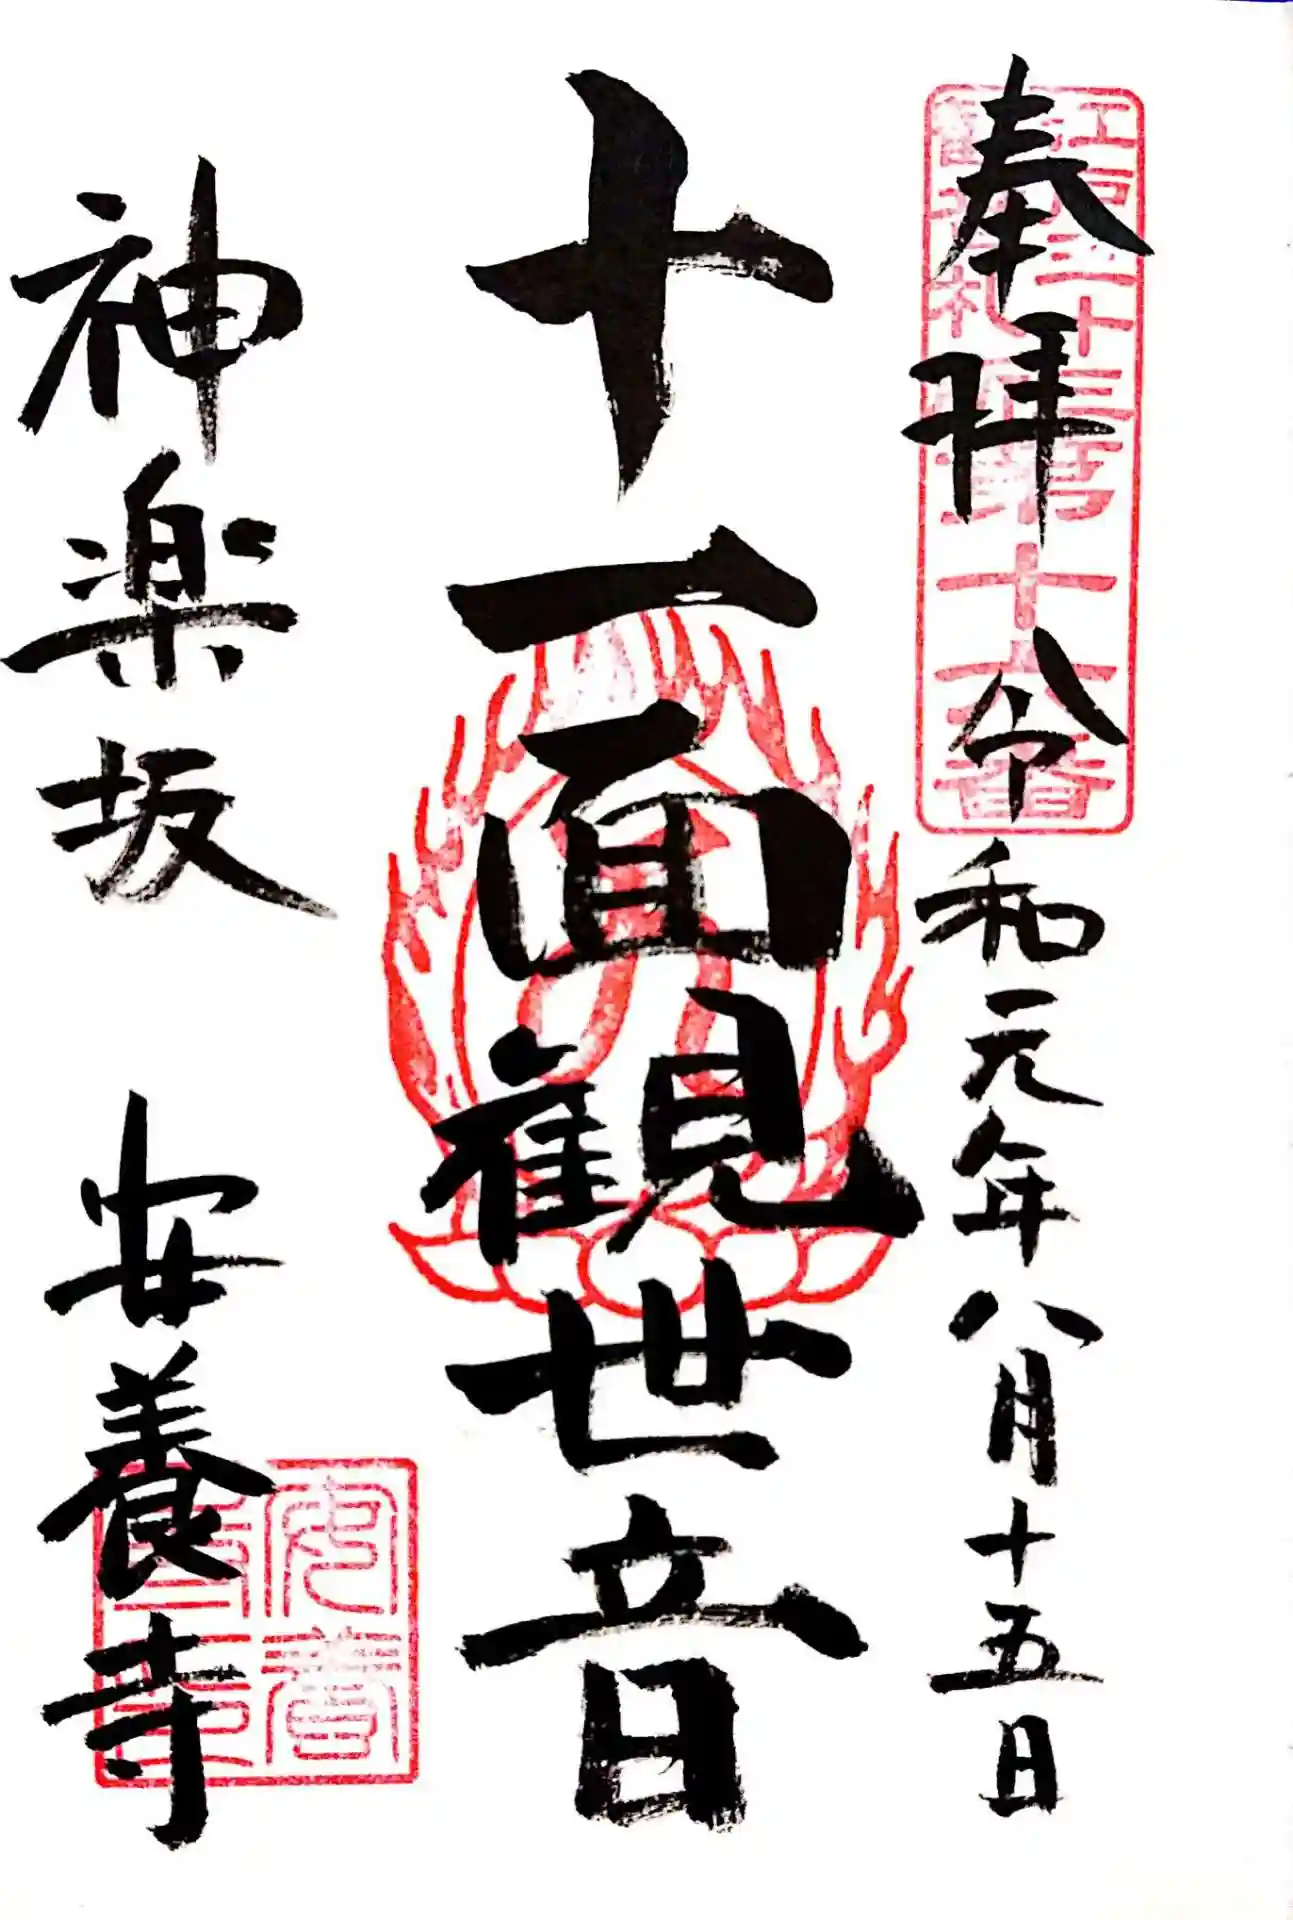 奉拝 令和元年八月十五日
江戸三十三ヶ所第十六番
観音札所
十一面観世音
神楽坂 安養寺